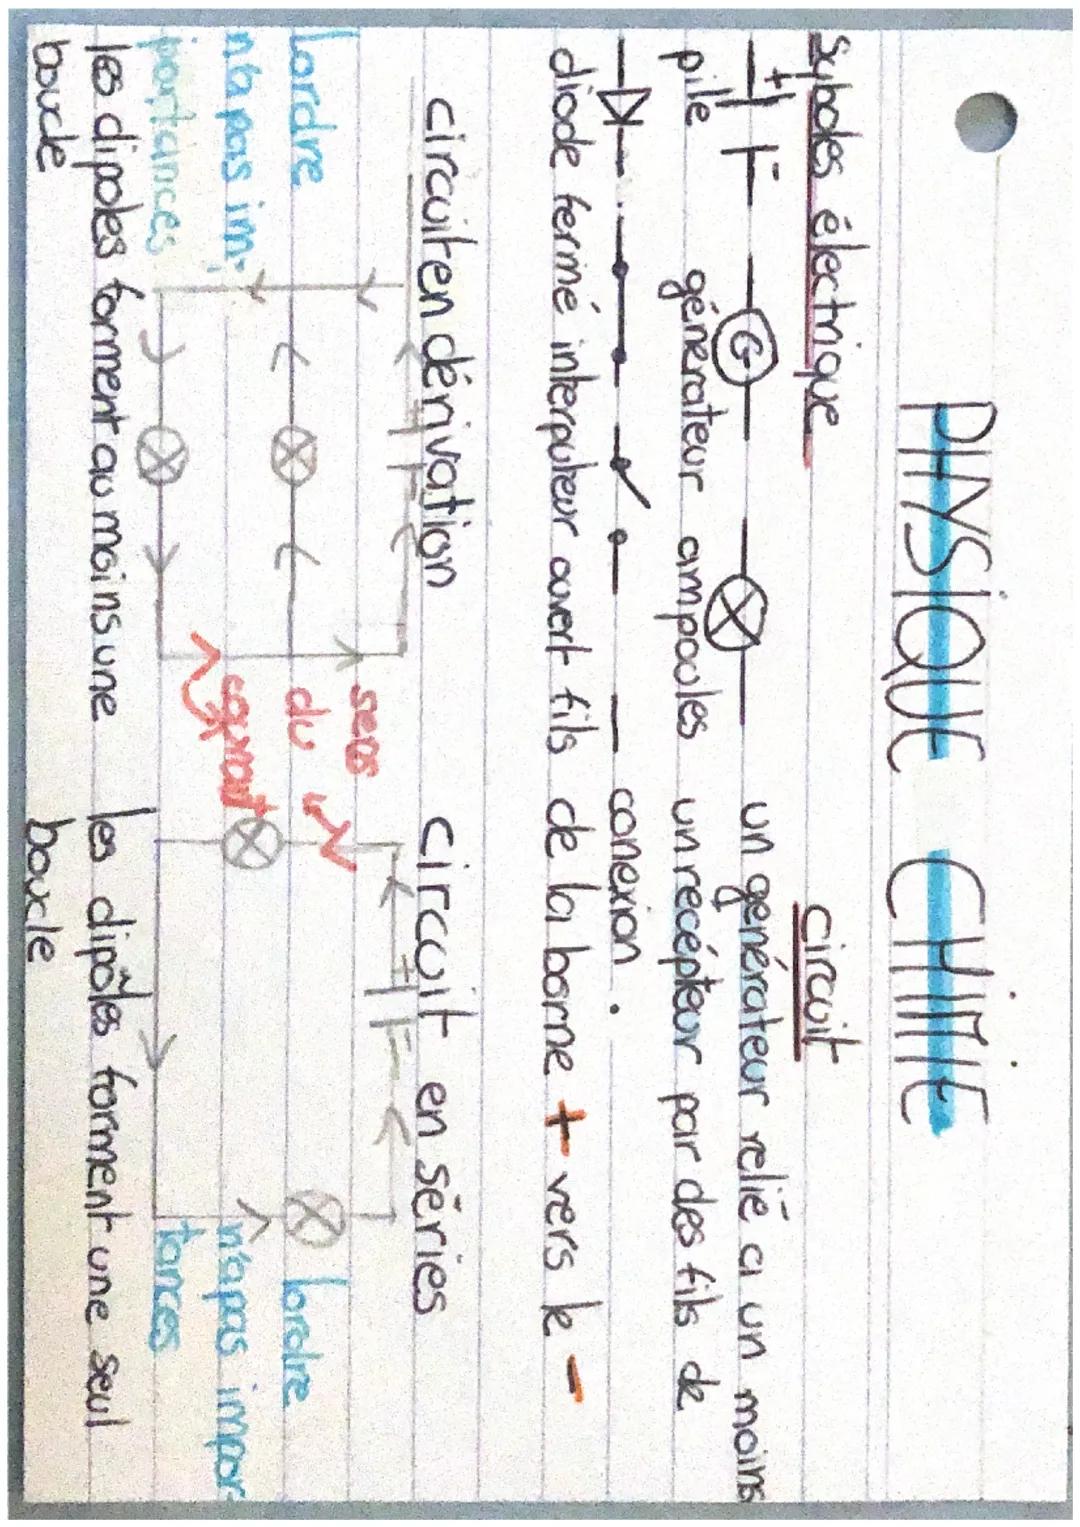 PHYSIQUE CHIMIE
Syboles électrique
+ -
G
pile générateur ampoules
diode fermé interputeur ouvert fils
circuit
un générateur relié a un moins
un récépteur par des fils de
conexion.
de la borne + vers le -
circuit en dérivation
+ -
Lordre
n'a pas im-
portances
sens
du
courant
les dipoles forment au moins une
boucle
circuit en séries
+ -
lordre
n'a pas impor-
tances
les dipôles forment une seul
boucle